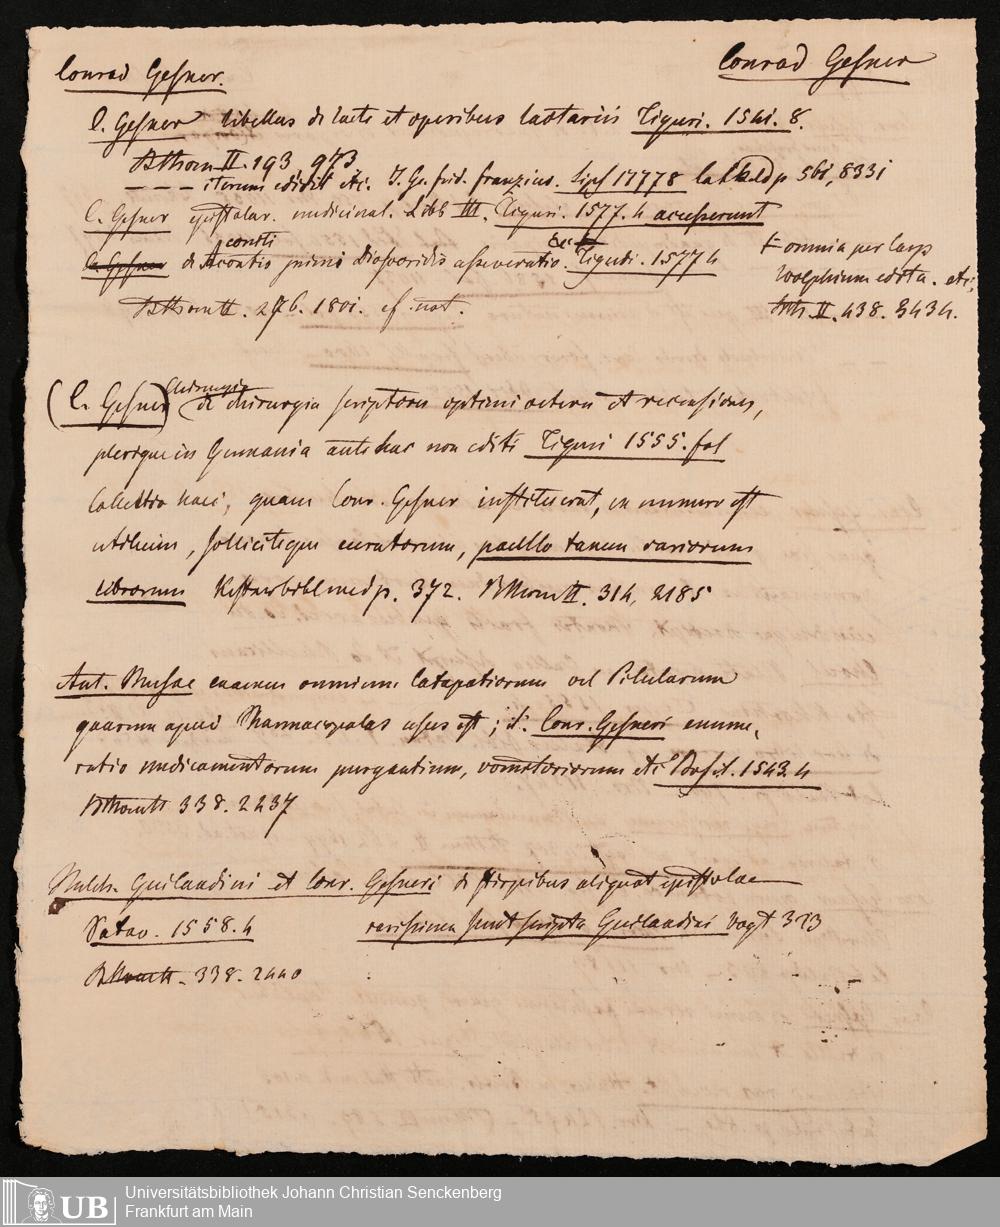 Conrad Gesner.
Conrad Gesner
C. Gesner libellus de lacte et operibus lactariis Tiguri. 1541. 8.
BThom II. 193. 973
– – – iterum edidit etc. J. Ge. frid. franzius. Lips 17778 p 561, 8331
C. Gesner epistolar. medicinal. Libb III. Tiguri. 1577. 4 accesserunt
C. Gesner de Aconitis primi Dioscoridis asseveratio. Tiguri. 1577 4
omnia per Casp
Wolphium edita. etc,
II. 438. 3434.
BThom II. 276. 1801. cf. not.
(C. Gesner) Chirurgia
de chirurgia scriptores optimi veteres et recensiores,
plerique in Germania antehac non editi Tiguri 1555. fol
Collectio haec, quam Conr. Gesner instituerat, ex numero est
utilium, solliciteque curatorum, paullo tamen rariorum
librorum bibl med p. 372. BThom II. 314, 2185
Ant. Musae examen omnium Catapotiorum vel Pilularum
quarum apud Pharmacopolas usus est; it. Conr. Gesneri enume,
ratio medicamentorum purgantium, vomitoriorum etc Basil. 1543. 4
BThom II 338. 2437
Melch. Guilandini et Conr. Gesneri de stirpibus aliquot epistolae
Patav. 1558. 4 rarissima sunt scripta Guilandini Vogt 313
BThom II. 338. 2440
Universitätsbibliothek Johann Christian Senckenberg
Frankfurt am Main
UB